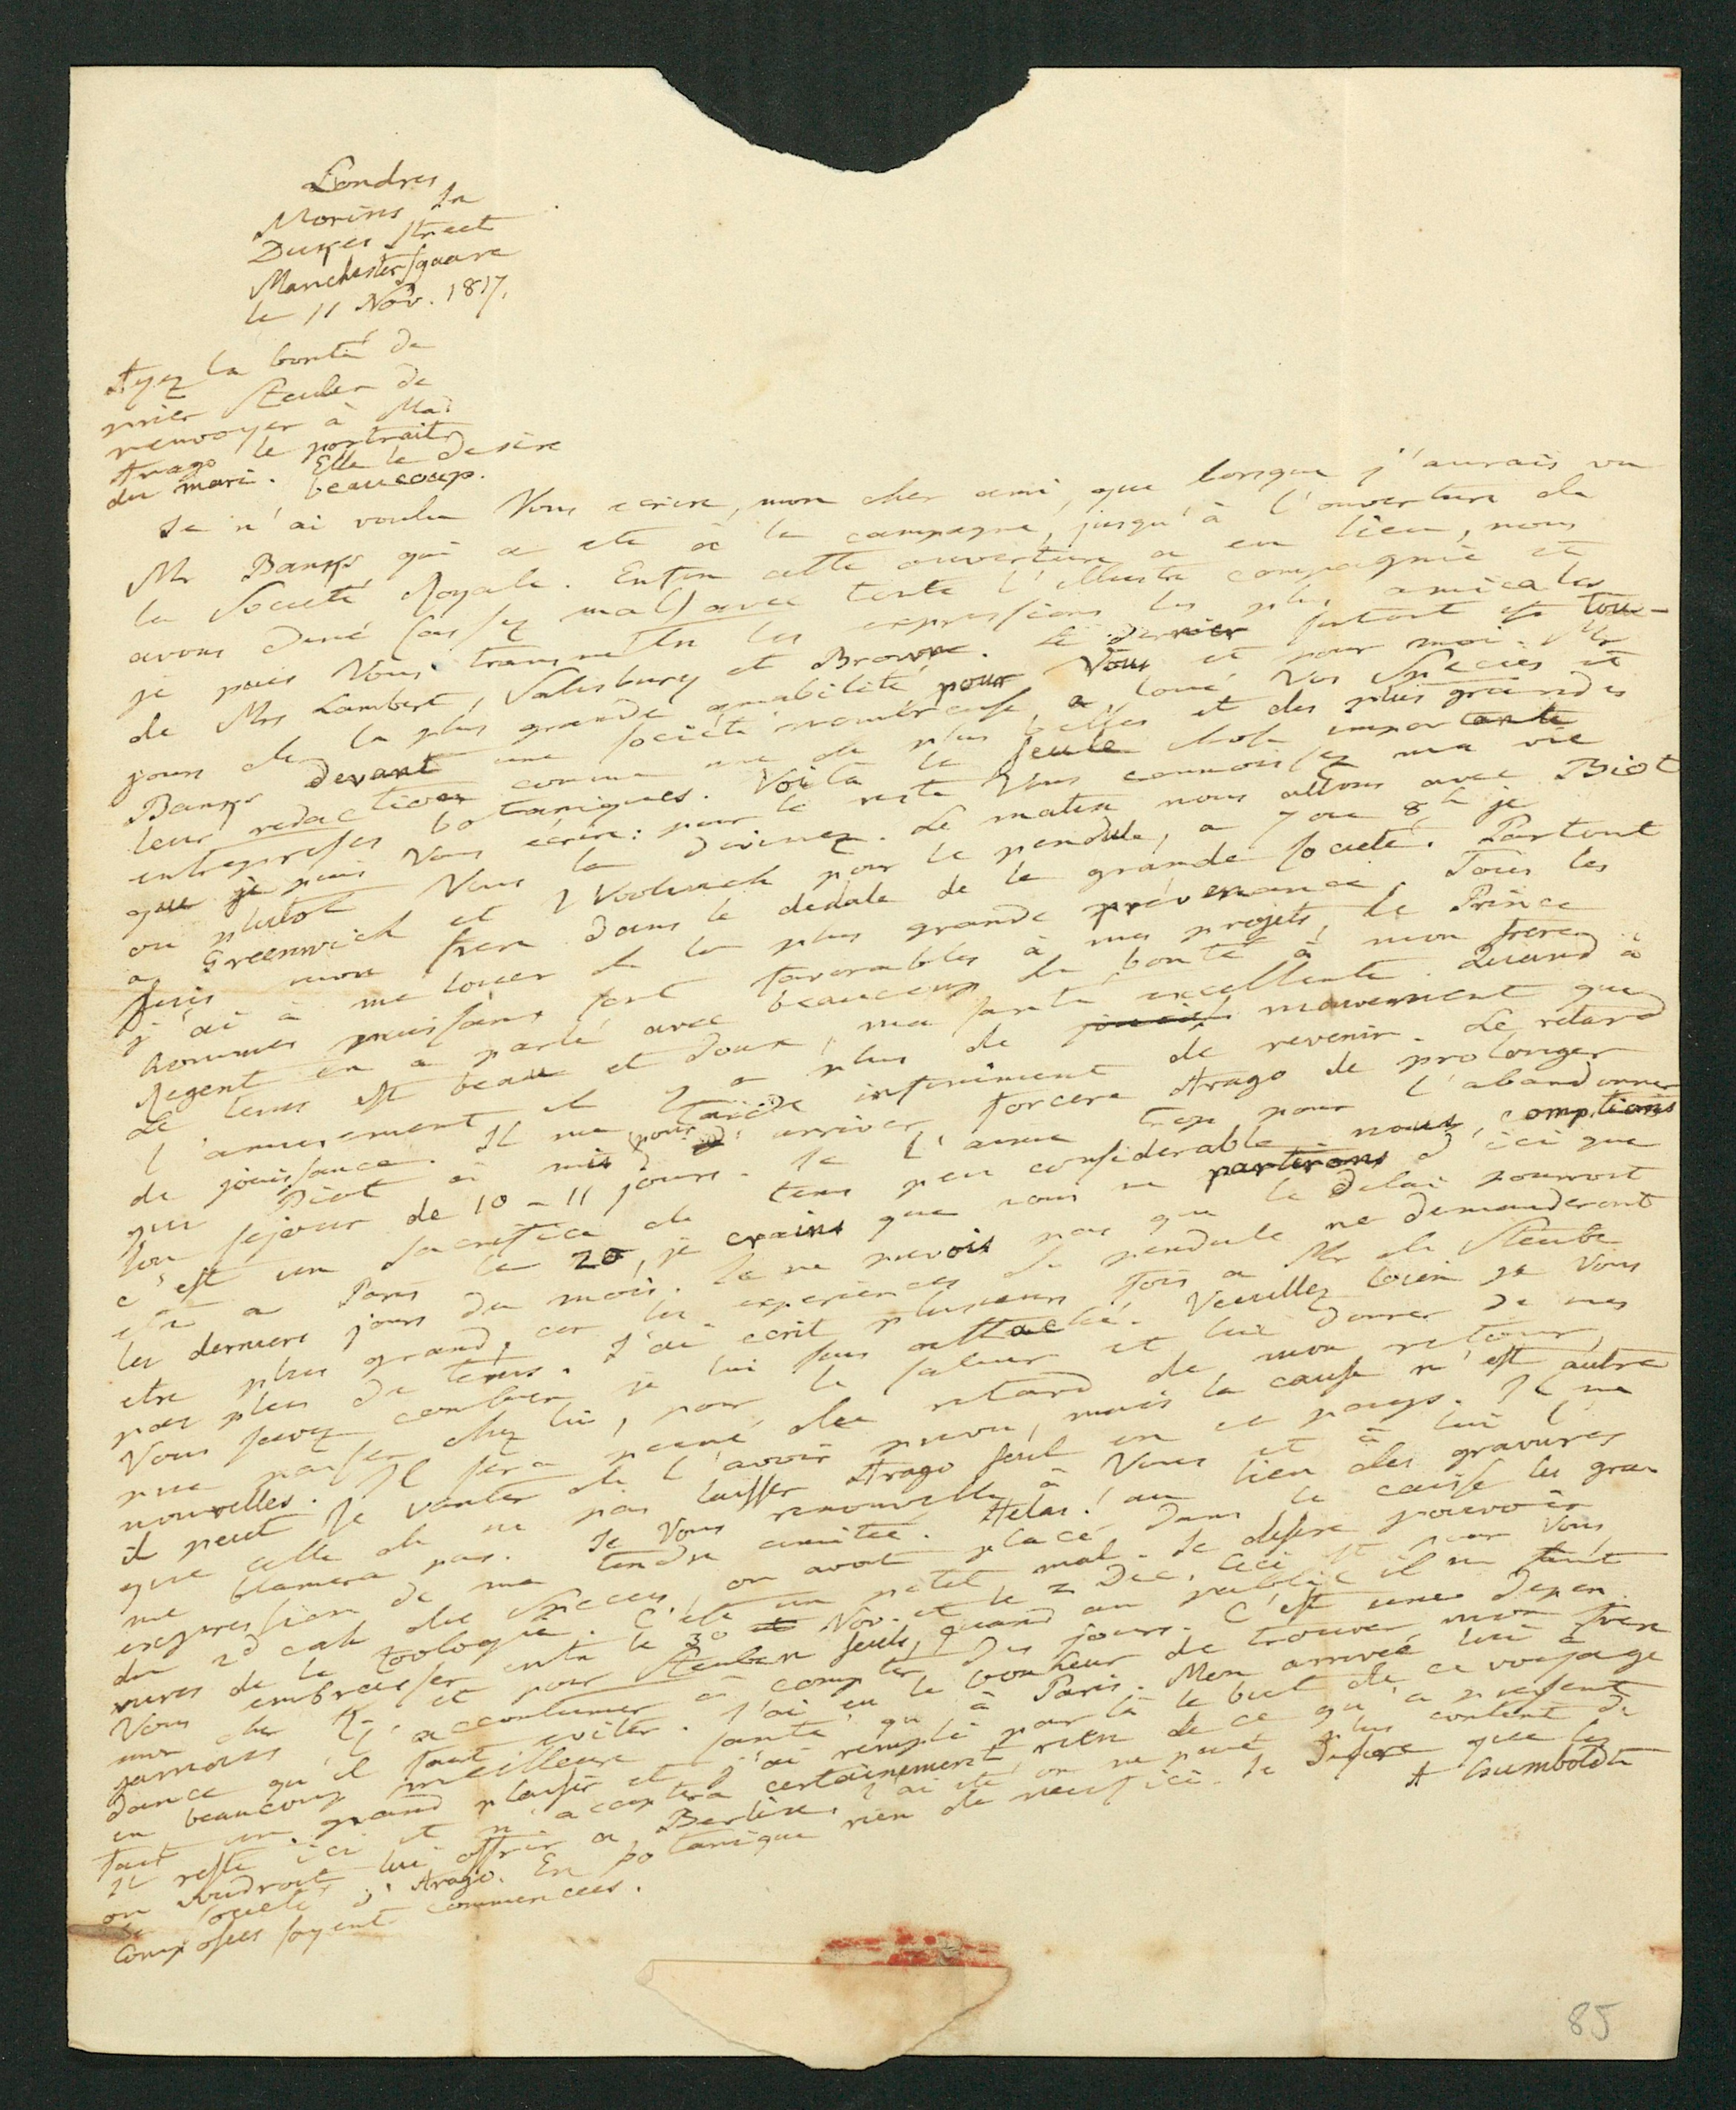 Londres
Morins
Dukes Street
Manchester Square
le 11 Nov. 1817.
Ayez la bonté de
prier Steuben de
renvoyer à Mad
Arago le portrait
du mari. Elle le desire
beaucoup.
Je n'ai voulu Vous ecrire, mon cher ami, que lorsque j'aurais vu
Mr Banks qui a eté à la campagne, jusqu'à l'ouverture de
la Societé Royale. Enfin cette ouverture a eu lieu, nous
avons diné (assez mal) avec toute l'illustre compagnie et
je puis Vous transmettre les expressions les plus amicales
de Mrs Lambert, Salisbury et Brown. Le dernier surtout est tou-
jours de la plus grande amabilité pour Vous et pour moi. Mr
Banks devant une societé nombreuse a loué Vos Species et
leur redaction comme une de plus belles et des plus grandes
entreprises botaniques. Voila la seule chose importante
que je puis Vous ecrire: pour le reste Vous connoissez ma vie
ou plutot Vous la devinez. Le matin nous allons avec Biot
a Greenwich et Woolwich pour le pendule, a 7 ou 8h je
suis mon frere dans le dedale de la grande societé. Partout
j'ai à me louer de la plus grande prévenance. Tous les
hommes puissans sont favorables à mes projets, le Prince
Regent en a parlé avec beaucoup de bonté à mon frere.
Le tems est beau et doux, ma santé excellente. Quand à
l'amusement il y a plus de mouvement que
de jouissance. Il me tarde infiniment de revenir. Le retard
que Biot a mis pour arriver forcera Arago de prolonger
son sejour de 10-11 jours. Je l'aime trop pour l'abandonner
c'est un sacrifice de tems peu considerable. nous comptions
etre a Paris le 20, je crains que nous ne partirons d'ici que
les derniers jours du mois. Je ne prevois pas que le delai pourroit
etre plus grand, car les experiences du pendule ne demanderont
pas plus de tems. J'ai ecrit plusieurs fois a Mr de Steuben
Vous savez combien je lui suis attaché. Veuillez bien je Vous
prie passer chez lui, pour le saluer et lui donner de mes
nouvelles. Il sera peiné du retard de mon retour,
il peut se vanter de l'avoir prevu, mais la cause n'est autre
que celle de ne pas laisser Arago seul en ce pays. Il ne
me blamera pas. Je Vous renouvelle à Vous et à lui l'
expression de ma tendre amitié. Helas! au lieu des gravures
du 2d cah. des Species, on avoit placé dans la caisse les gra-
vures de la Zoologie. C'est un petit mal. Je desire pouvoir
Vous embrasser entre le 30 Nov. et le 2 Dec. Ceci est pour Vous
mon cher K. et pour Steuben seuls, quand au public il ne faut
jamais l'accoutumer à compter des jours. C'est une depen-
dance qu'il faut eviter. J'ai eu le bonheur de trouver mon frere
en beaucoup meilleure santé qu'à Paris. Mon arrivée lui a
fait un grand plaisir et j'ai rempli par là le but de ce voyage
Il reste ici et n'acceptera certainement rien de ce qu'a present
on voudroit lui offrir a Berlin. on ne peut plus content de
la societé d'Arago. En botanique rien de neuf ici. Je desire que les
Composées soyent commencées.
A Humboldt
85